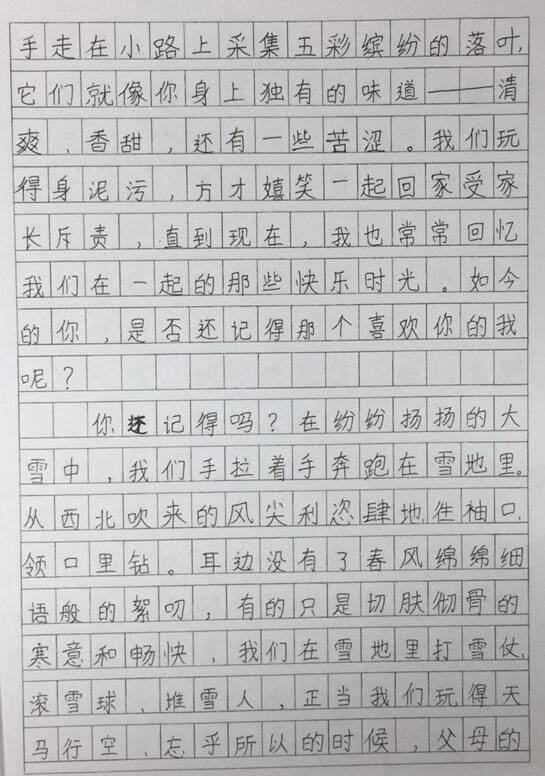 手走在小路上采集五彩缤纷的落叶,
它们就像你身上独有的味道——清
爽、香甜,还有一些苦涩。我们玩
得身泥污,方才嬉笑一起回家受家
长斥责,直到现在,我也常常回忆
我们在一起的那些快乐时光。如今
的你,是否还记得那个喜欢你的我
呢?
你还记得吗?在纷纷扬扬的大
雪中,我们手拉着手奔跑在雪地里。
从西北吹来的风尖利恣肆地往袖口、
领口里钻。耳边没有了春风绵绵细
语般的絮叨,有的只是切肤彻骨的
寒意和畅快,我们在雪地里打雪仗、
滚雪球、堆雪人,正当我们玩得天
马行空、忘乎所以的时候,父母的